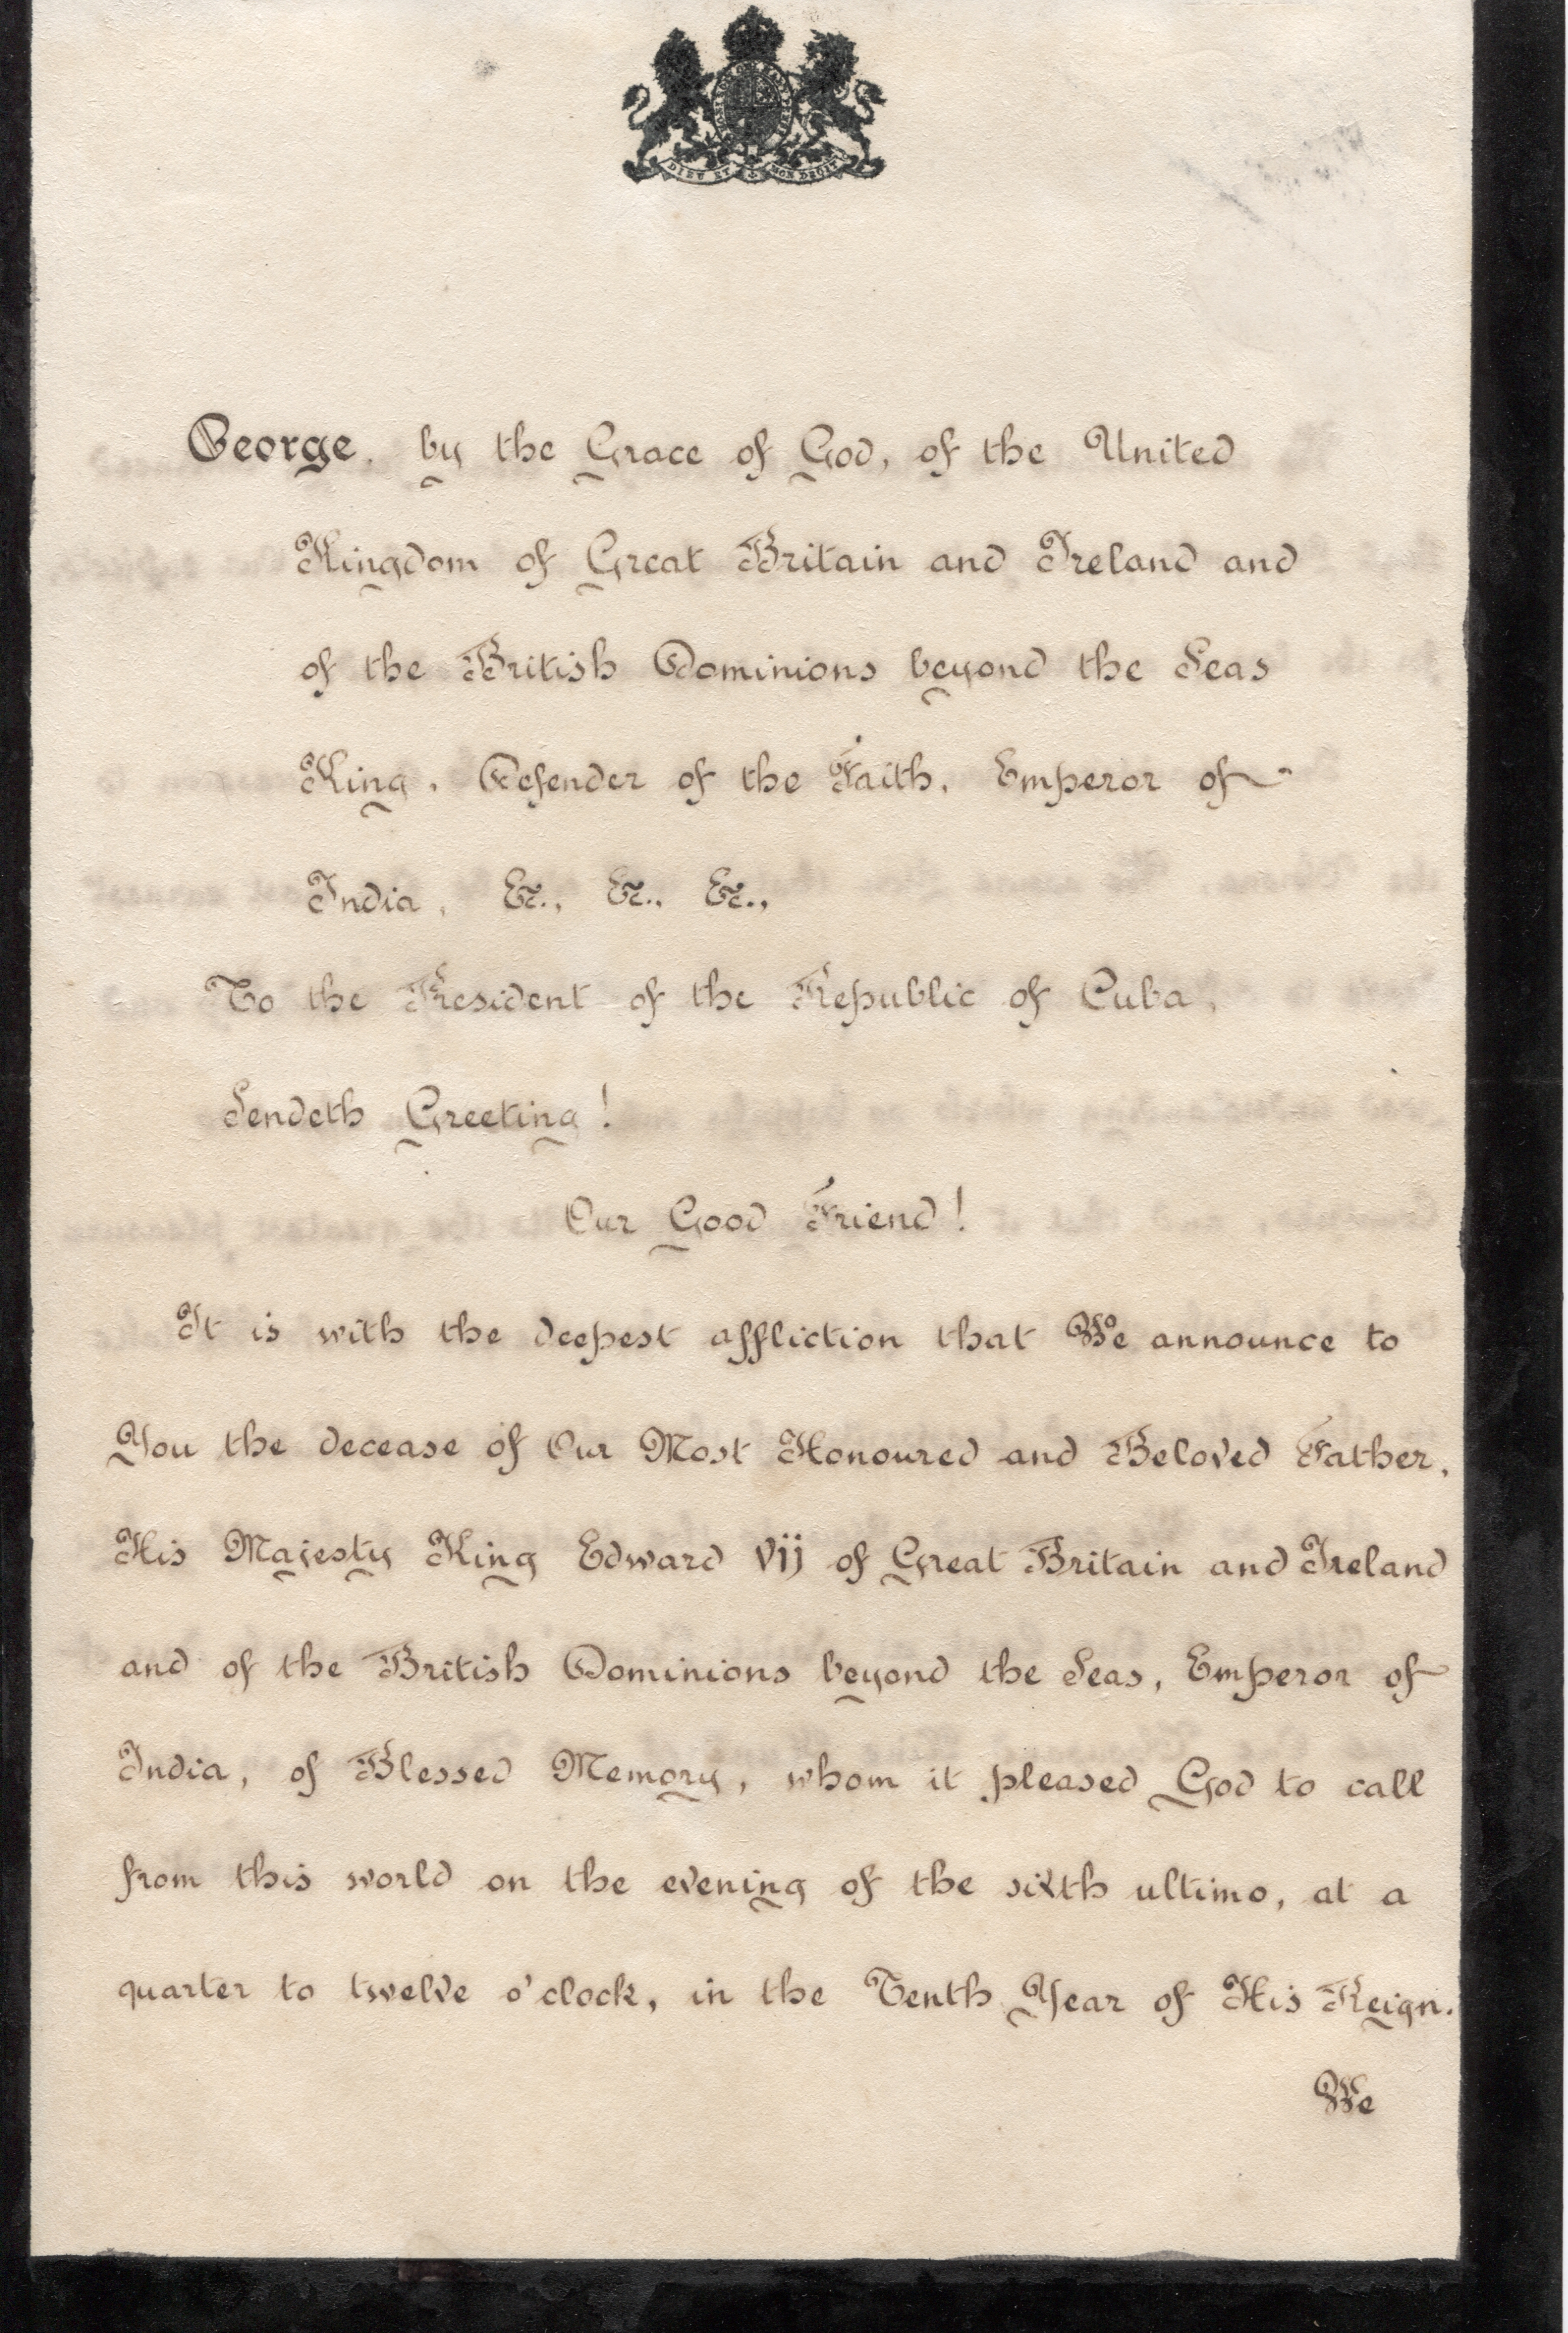 DIEU ET MON DROIT
George, by the Grace of God, of the United
Kingdom of Great Britain and Ireland and
of the British Dominions beyond the Seas
King, Defender of the Faith, Emperor of
India, &c., &c., &c.,
To the President of the Republic of Cuba,
Sendeth Greeting!
Our Good Friend!
It is with the deepest affliction that We announce to
You the decease of Our Most Honoured and Beloved Father,
His Majesty King Edward vij of Great Britain and Ireland
and of the British Dominions beyond the Seas, Emperor of
India, of Blessed Memory, whom it pleased God to call
from this world on the evening of the sixth ultimo, at a
quarter to twelve o'clock, in the Tenth Year of His Reign.
We